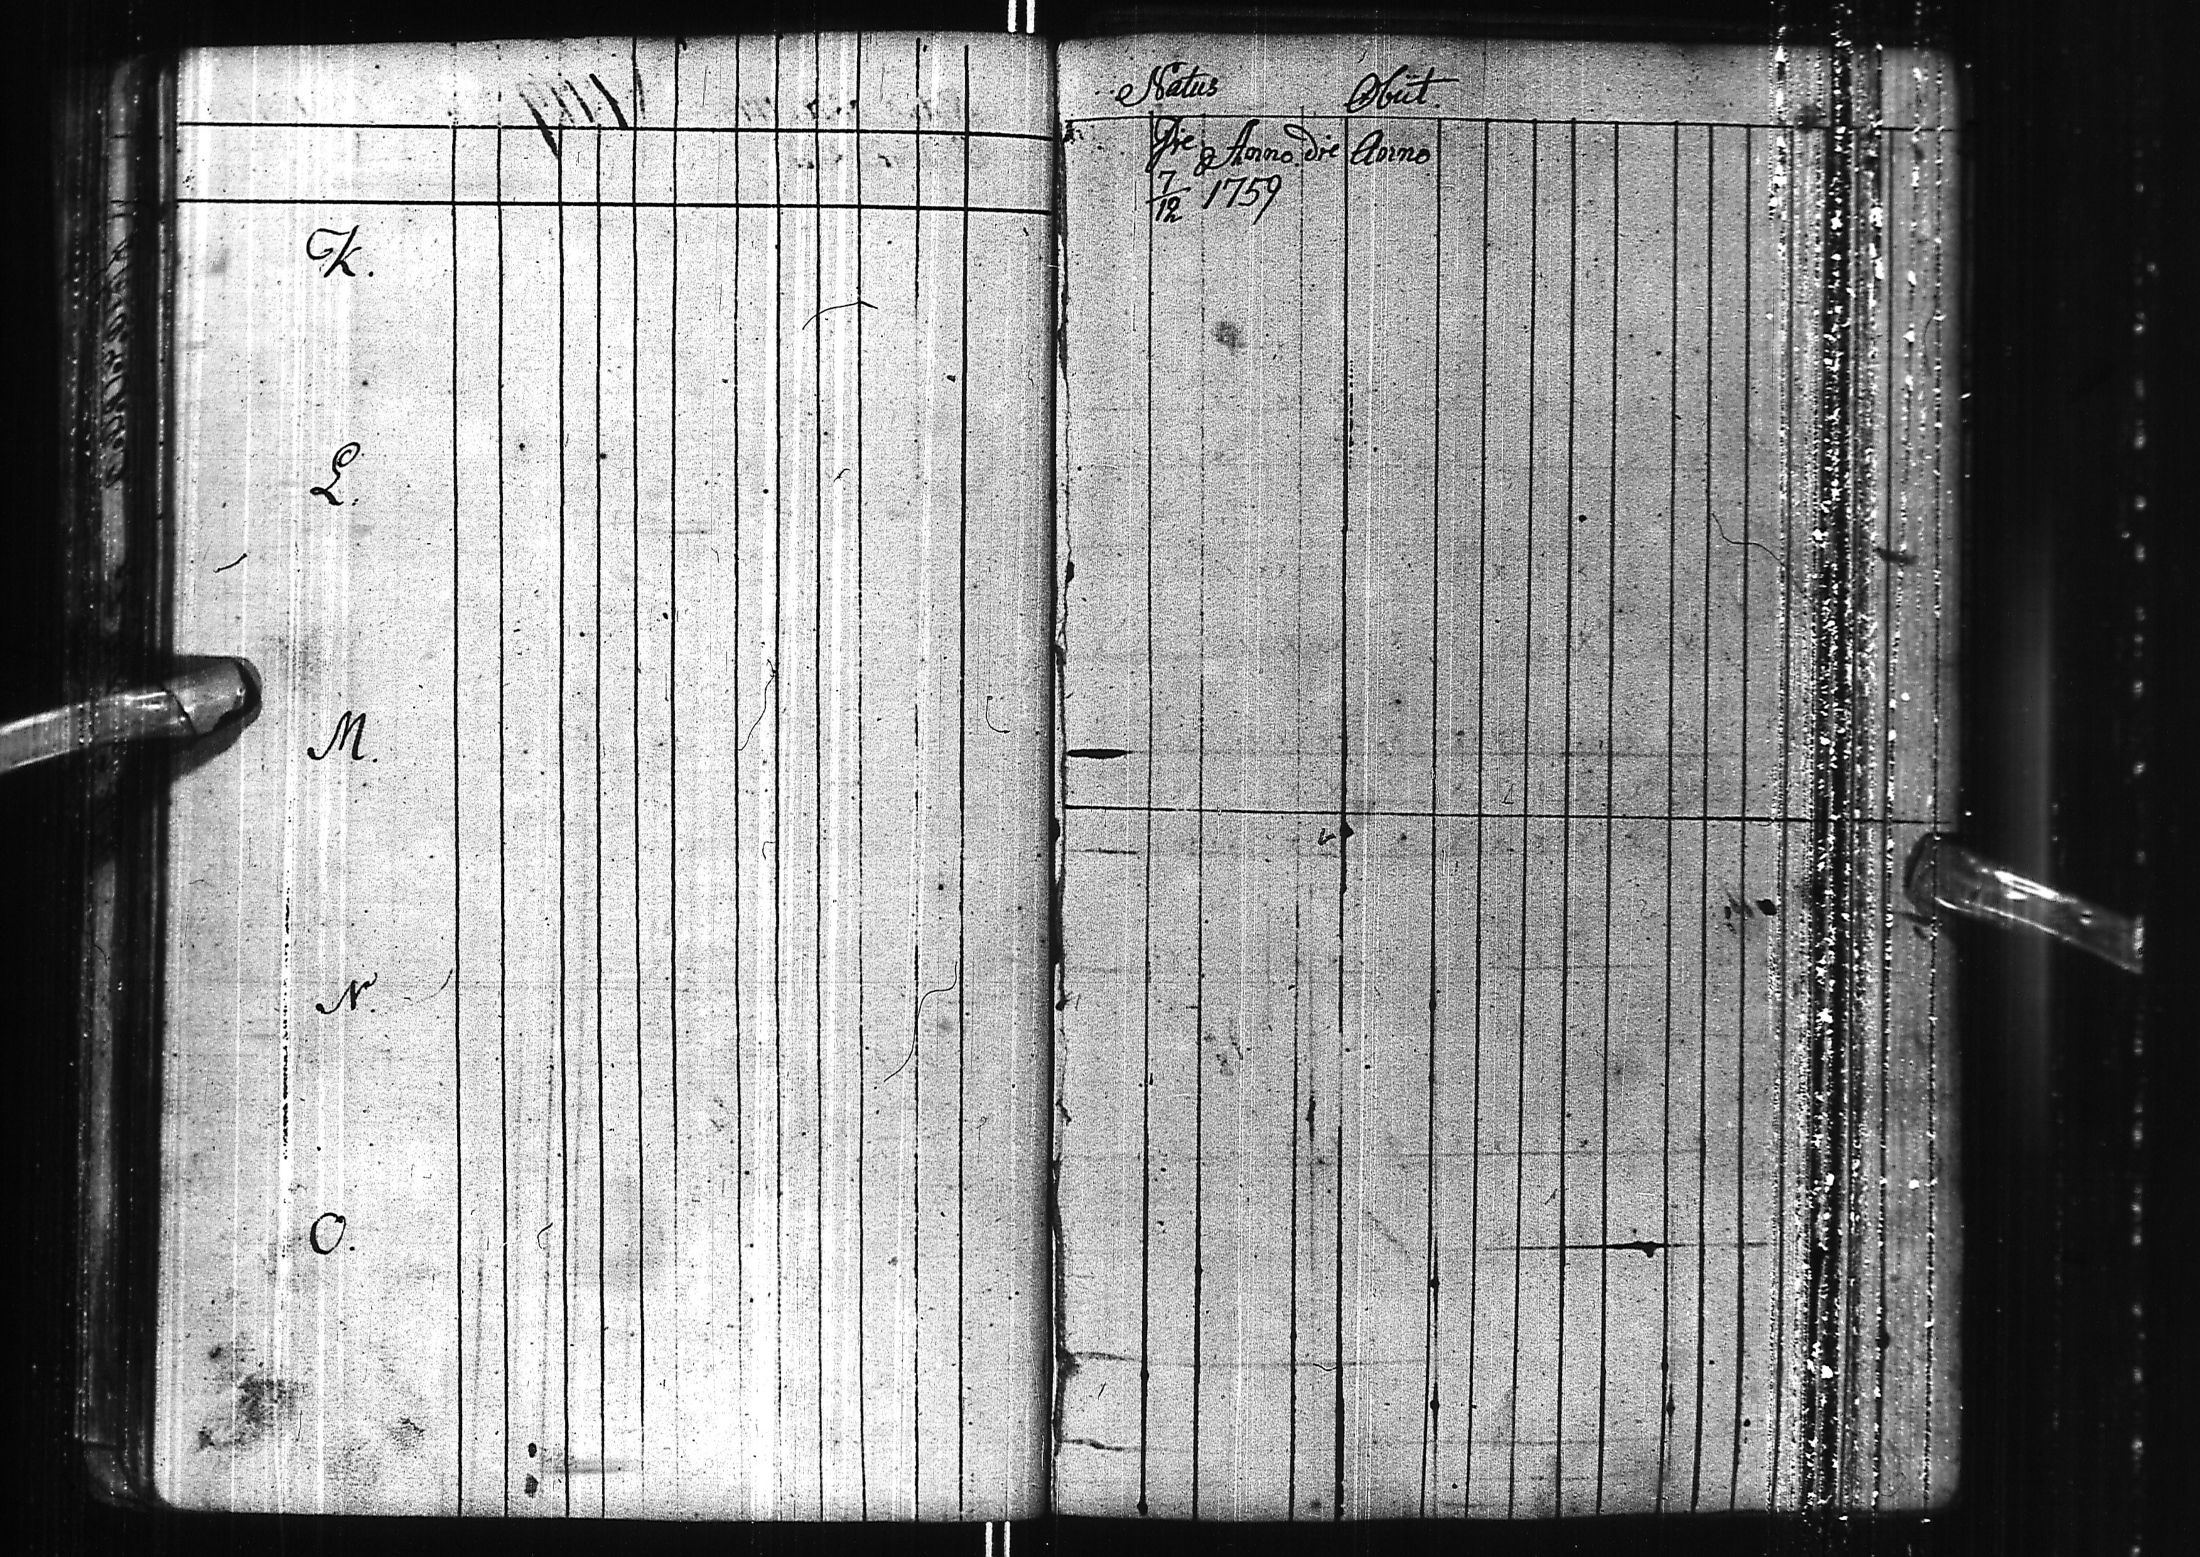 K.
L.
M.
N.
O.
Natus Obiit.
Die Anno die Anno
7/12 1759